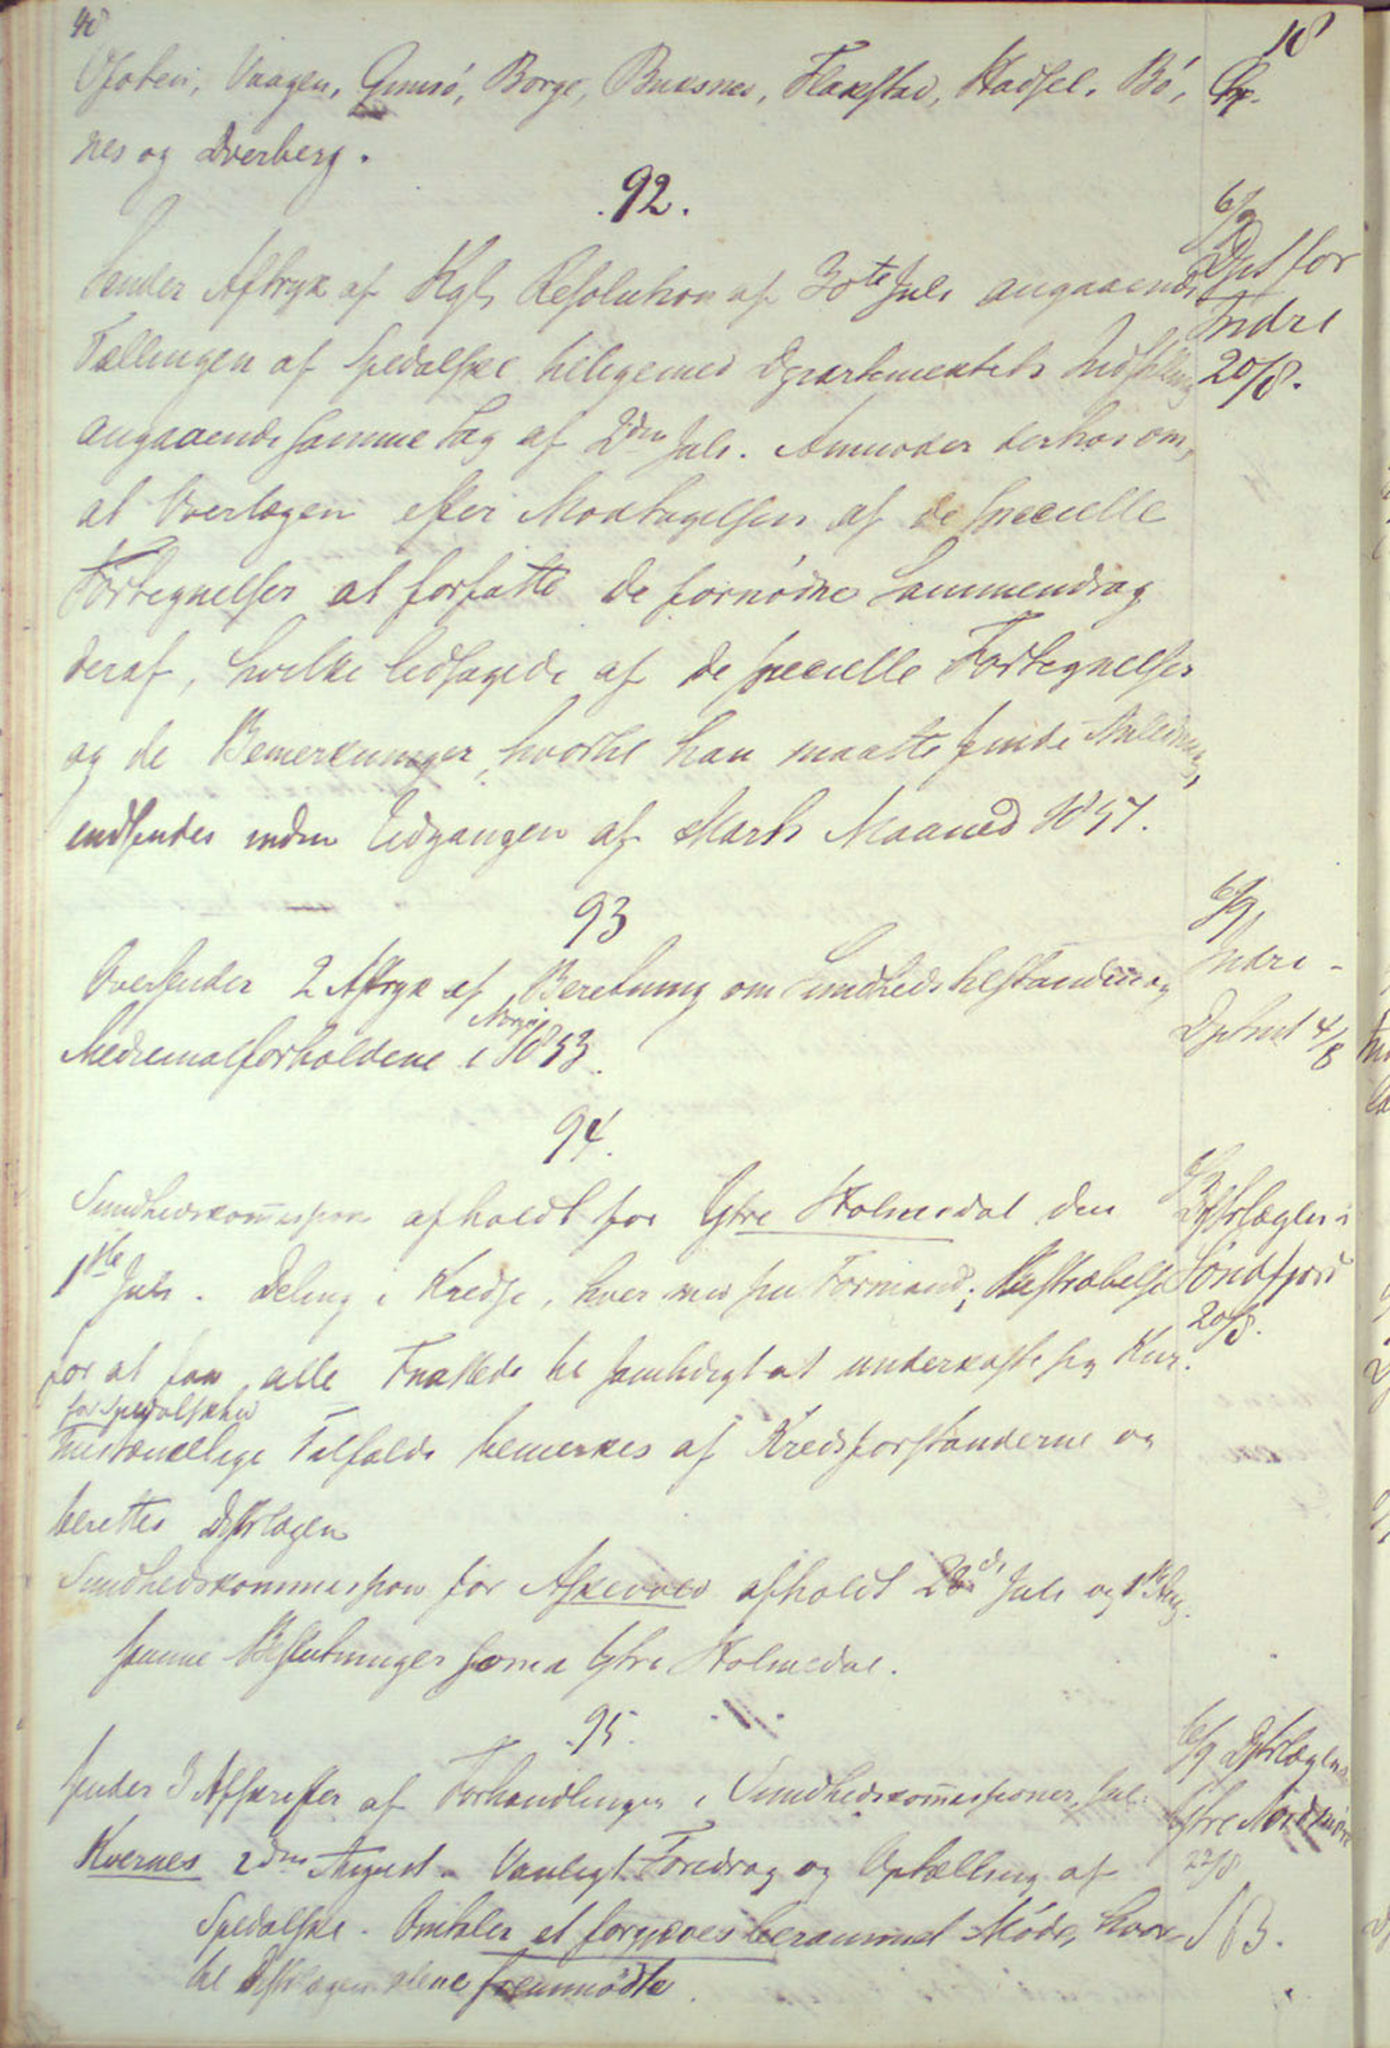 18
Ofoten, Vaagen, Gimsø, Borge, Buksnes, Flakstad, Hadsel, Bø,
nes og Dverberg.
92.
6/9
Dpt for
Indre
20/8.
Sender Aftryk af Kgl. Resolution af 30te Juli angaaende
Tællingen af Spedalske tilligemed Departementets Indstilling
angaaende samme Sag af 2den Juli. Anmoder derhos om,
at Overlægen efter Modtagelsen af de specielle
Fortegnelser at forfatte de fornødne Sammendrag
deraf, hvilke ledsagede af de specielle Fortegnelser
og de Bemerkninger, hvortil han maatte finde Anledning,
indsendes inden Udgangen af Marts Maaned 1857.
93
6/9
Indre
Dptmt 4/8
Oversender 2 Aftryk af Beretning om Sundhedstilstanden og
Medicinalforholdene i Norge 1853.
94.
Distrlægen i
Søndfjord
20/8.
Sundhedskommission afholdt for Ytre Holmedal den
1ste Juli. Deling i Kredse, hver med sin Formand; Bestræbelse
for at faa alle Fnattede til samtidigt at underkaste sig Kur.
for Spedalskhed
Mistænkelige Tilfælde bemerkes af Kredsforstanderne og
berettes Distrlægen
Sundhedskommission for Askevold afholdt 28de Juli og 1ste Aug.
samme Beslutninger som i Ytre Holmedal.
95.
6/9 Distrlægen i
Ytre Nordmøre
22/8
Sender 3 Afskrifter af Forhandlinger i Sundhedskommissioner,
Kvernes 2den August. Vanligt Foredrag og Optælling af
Spedalske. Omtaler et forgjæves berammet Møde, hvor
NB.
til Distrlægen alene fremmødte.